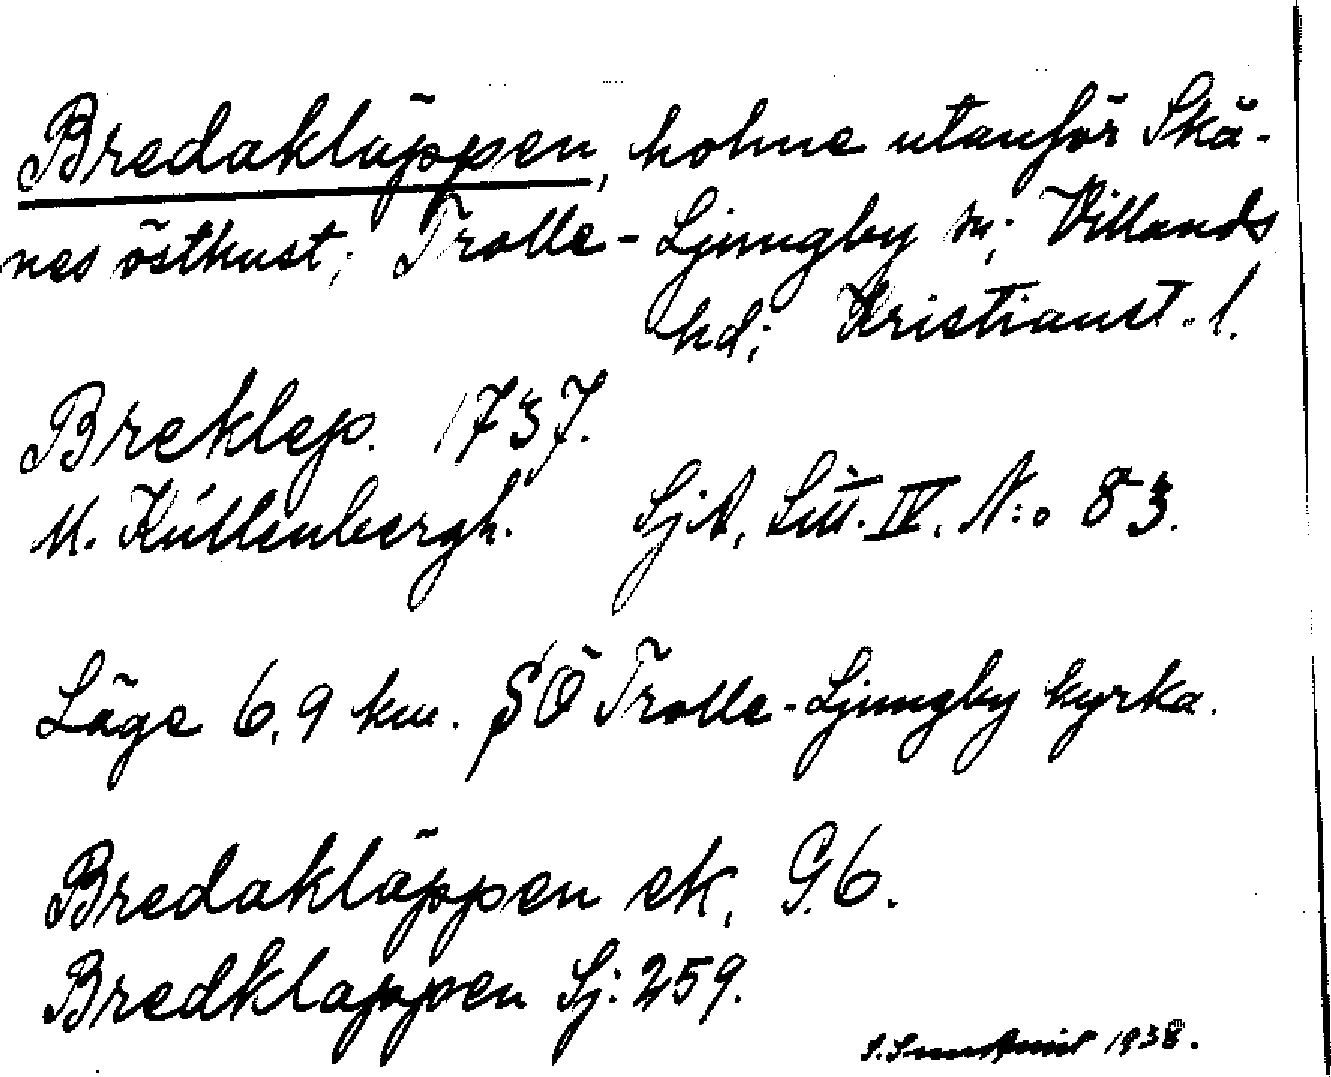 Bredakläppen, holme utanför Skå-
nes östkust; Trolle-Ljungby sn; Villands
hd; Kristianst. l.
Breklep. 1737.
M. Kúllenbergh. SjA, Litt. IV. N:o 83.
Läge 6,9 km. SÖ Trolle-Ljungby kyrka.
Bredakläppen ek, G.6.
Bredklappen Sj: 259.
1938.